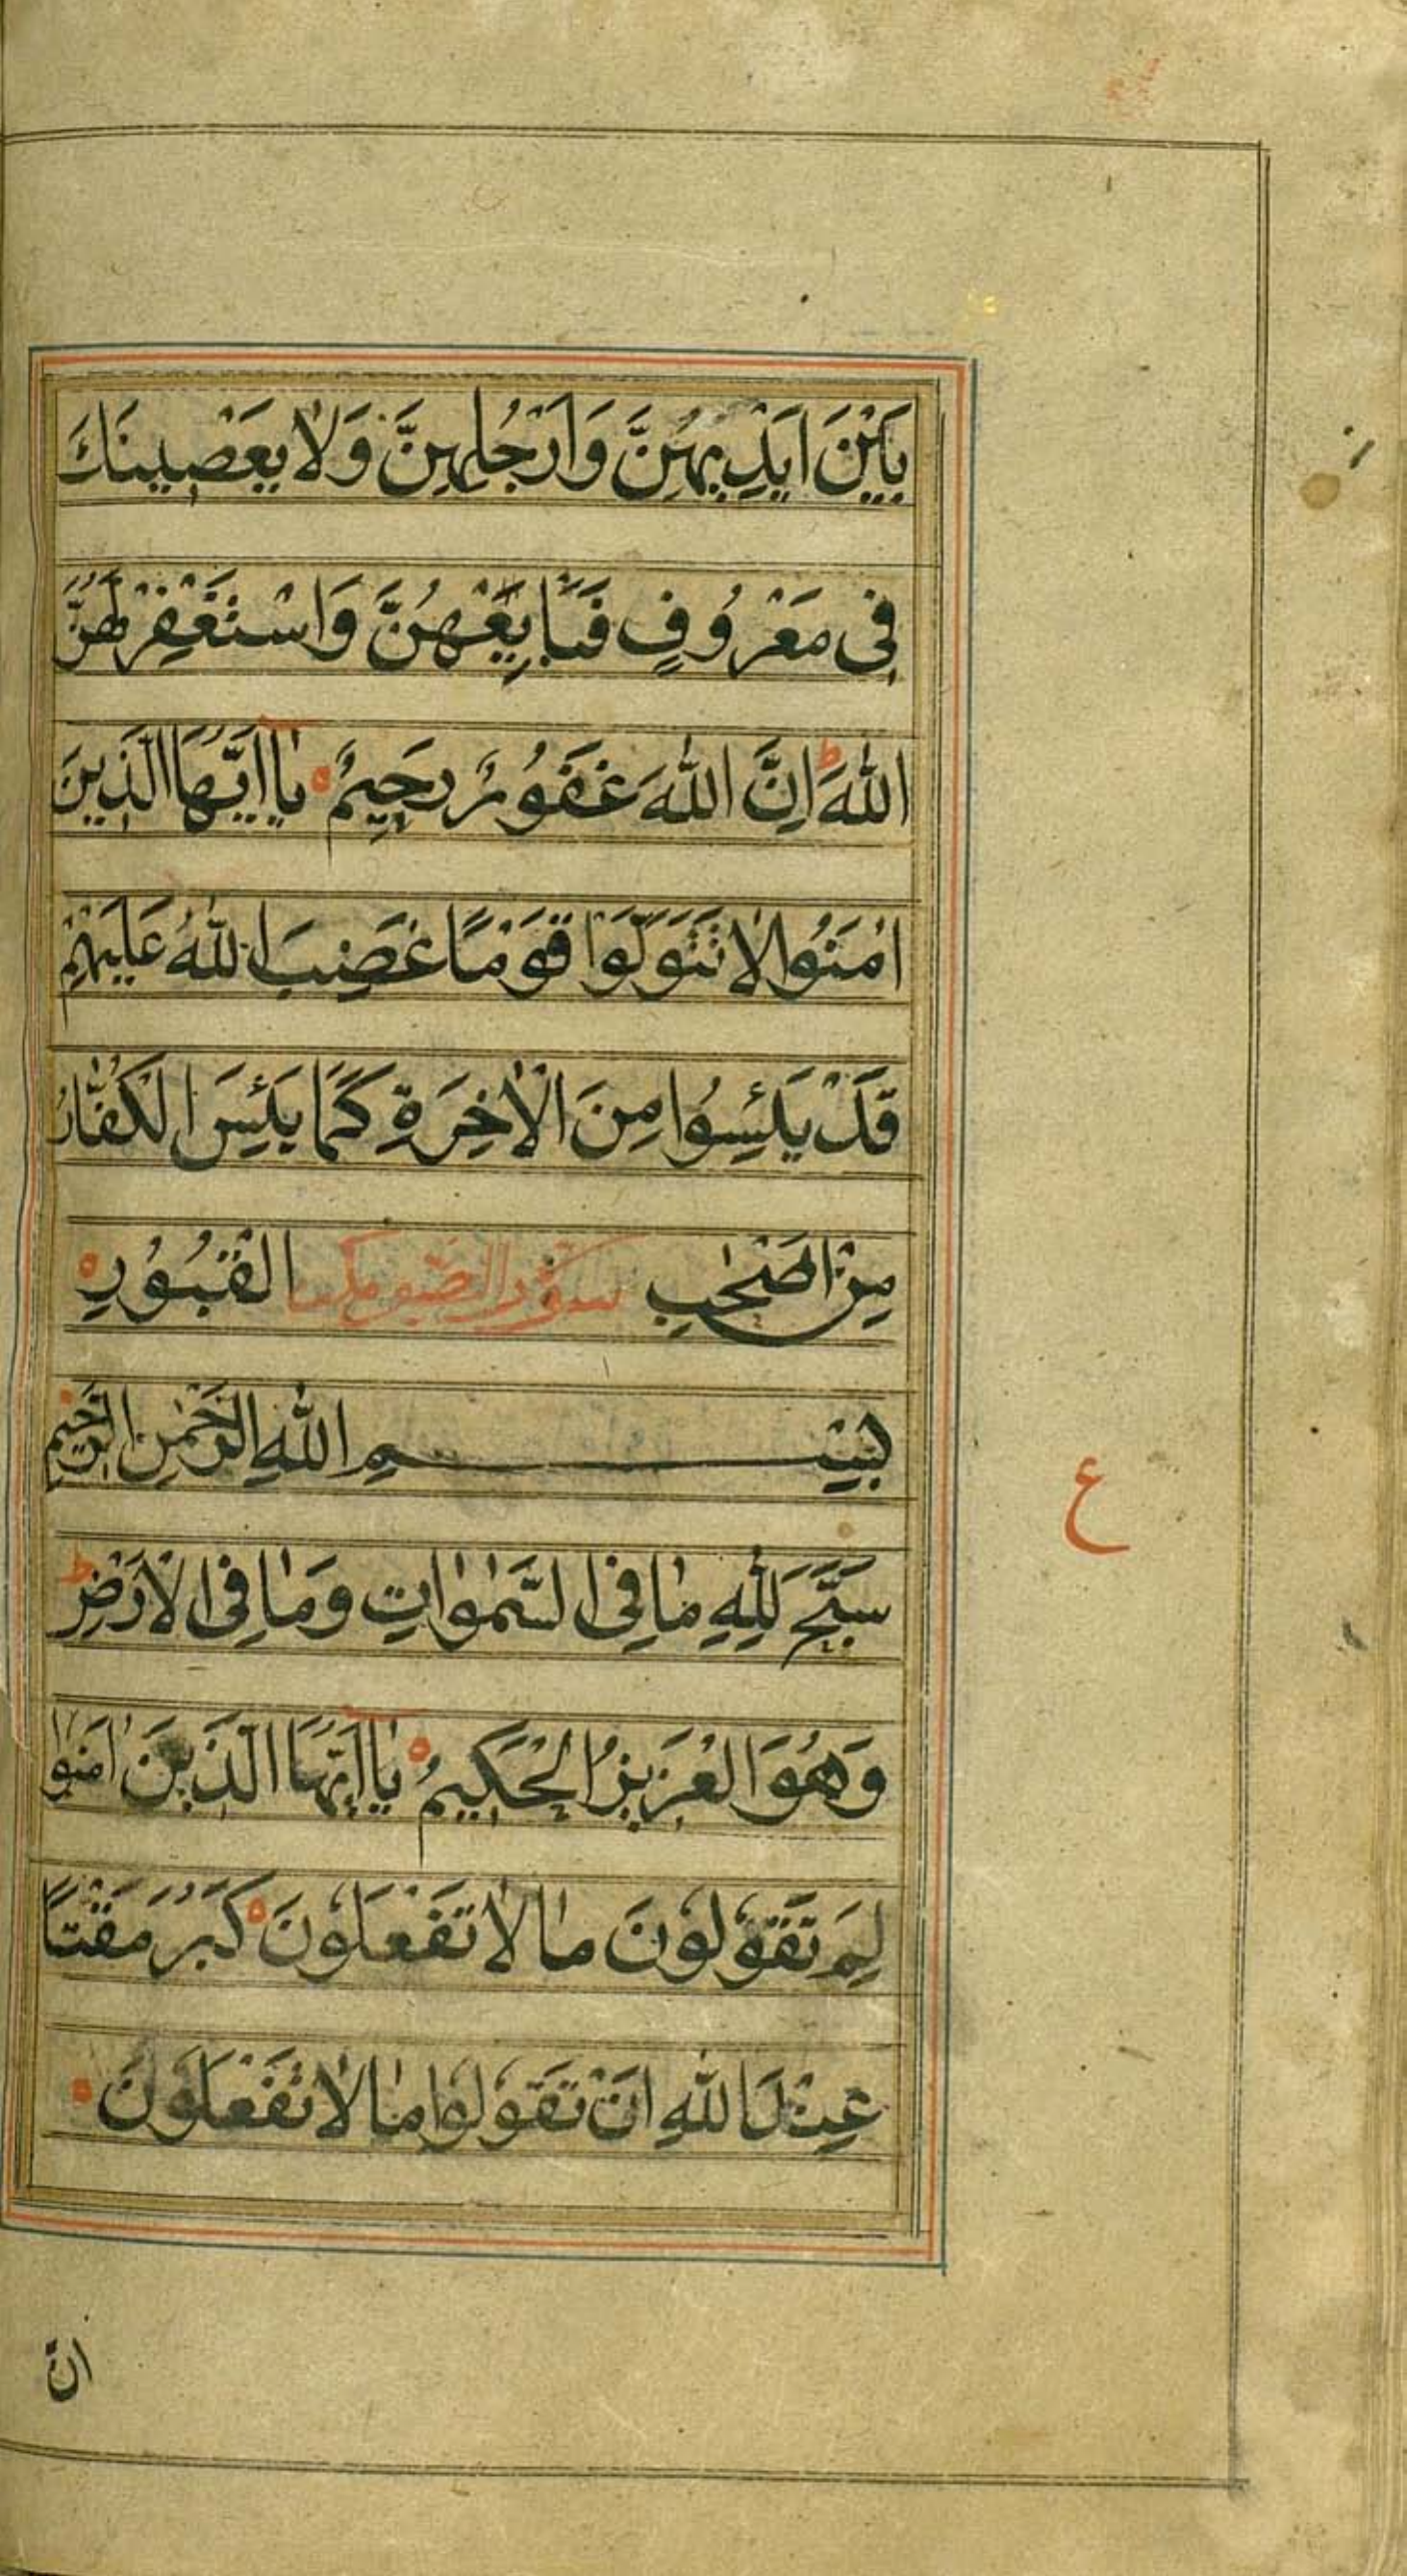 بَيْنَ اَيْدِيهِنَّ وَاَرْجُلِهِنَّ وَلَا يَعْصِينَكَ
فِى مَعْرُوفٍ فَبَايِعْهُنَّ وَاسْتَغْفِرْ لَهُنَّ
اللّٰهَ ط اِنَّ اللّٰهَ غَفُورٌ رَحِيمٌ ه يَا اَيُّهَا الَّذِينَ
اٰمَنُوا لَا تَتَوَلَّوْا قَوْمًا غَضِبَ اللّٰهُ عَلَيْهِمْ
قَدْ يَئِسُوا مِنَ الْاٰخِرَةِ كَمَا يَئِسَ الْكُفَّارُ
مِنْ اَصْحٰبِ سورة الصف الْقُبُورِ ه
بِسْمِ اللّٰهِ الرَّحْمٰنِ الرَّحِيمِ
سَبَّحَ لِلّٰهِ مَا فِى السَّمٰوَاتِ وَمَا فِى الْاَرْضِ ط
وَهُوَ الْعَزِيزُ الْحَكِيمُ ه يَا اَيُّهَا الَّذِينَ اٰمَنُوا
ع
لِمَ تَقُولُونَ مَا لَا تَفْعَلُونَ ه كَبُرَ مَقْتًا
عِنْدَ اللّٰهِ اَنْ تَقُولُوا مَا لَا تَفْعَلُونَ ه
انّ